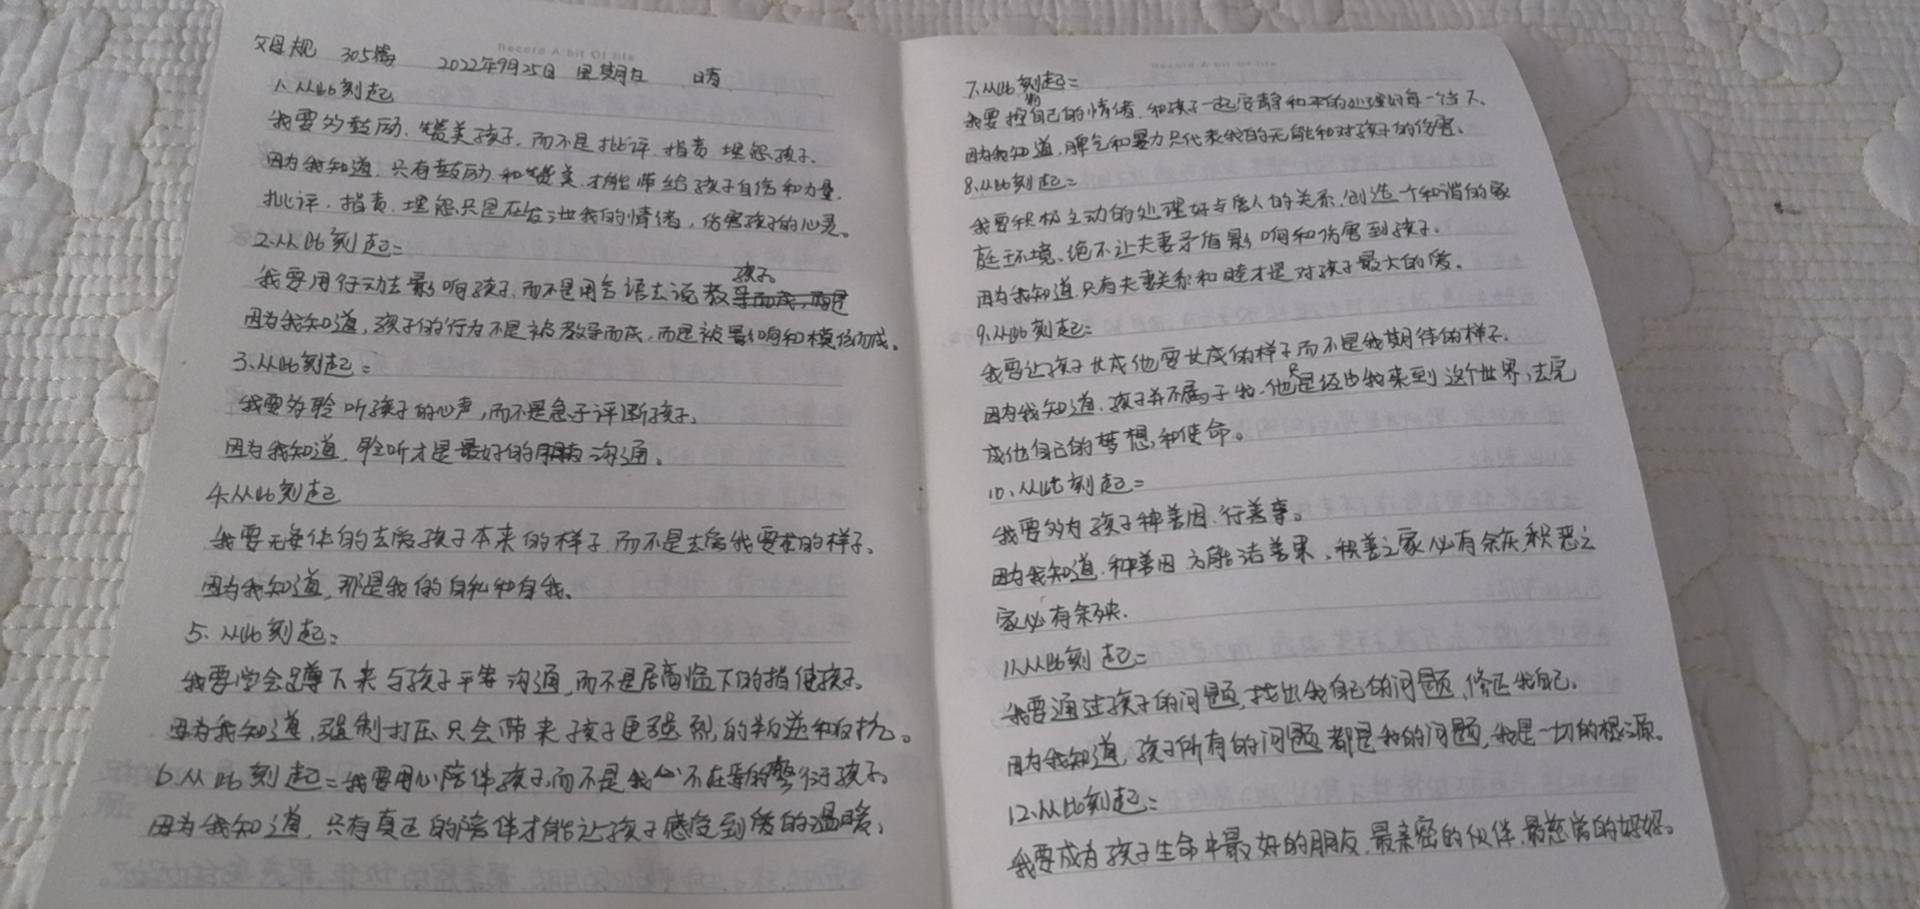 Record A bit Of life
父母规 305遍 2022年9月25日 星期日 晴
1.从此刻起
我要多鼓励、赞美孩子,而不是批评、指责、埋怨孩子.
因为我知道,只有鼓励和赞美,才能带给孩子自信和力量.
批评、指责、埋怨只是在发泄我的情绪,伤害孩子的心灵。
2.从此刻起:
我要用行动去影响孩子,而不是用言语去说教孩子。
因为我知道,孩子的行为不是被教导而成,而是被影响和模仿而成。
3.从此刻起:
我要多聆听孩子的心声,而不是急于评断孩子,
因为我知道,聆听才是最好的沟通。
4.从此刻起
我要无条件的去爱孩子本来的样子,而不是去爱我要求的样子.
因为我知道,那是我的自私和自我.
5.从此刻起:
我要学会蹲下来与孩子平等沟通,而不是居高临下的指使孩子.
因为我知道,强制打压只会带来孩子更强烈的叛逆和对抗。
6.从此刻起:我要用心陪伴孩子,而不是我心不在焉的敷衍孩子.
因为我知道,只有真正的陪伴才能让孩子感受到爱的温暖,
Record A bit Of life
7.从此刻起:
我要控制自己的情绪,和孩子一起安静和平的处理好每一个当下、
因为我知道,脾气和暴力只代表我的无能和对孩子的伤害。
8.从此刻起:
我要积极主动的处理好与爱人的关系,创造一个和谐的家
庭环境,绝不让夫妻矛盾影响和伤害到孩子.
因为我知道,只有夫妻关系和睦才是对孩子最大的爱。
9.从此刻起:
我要让孩子长成他要长成的样子而不是我期待的样子.
因为我知道,孩子并不属于我,他只是经由我来到这个世界,去完
成他自己的梦想和使命。
10、从此刻起:
我要多为孩子种善因,行善事。
因为我知道,种善因方能结善果,积善之家必有余庆,积恶之
家必有余殃.
11.从此刻起:
我要通过孩子的问题,找出我自己的问题,修正我自己.
因为我知道,孩子所有的问题都是我的问题,我是一切的根源。
12.从此刻起:
我要成为孩子生命中最好的朋友,最亲密的伙伴,最慈爱的妈妈。